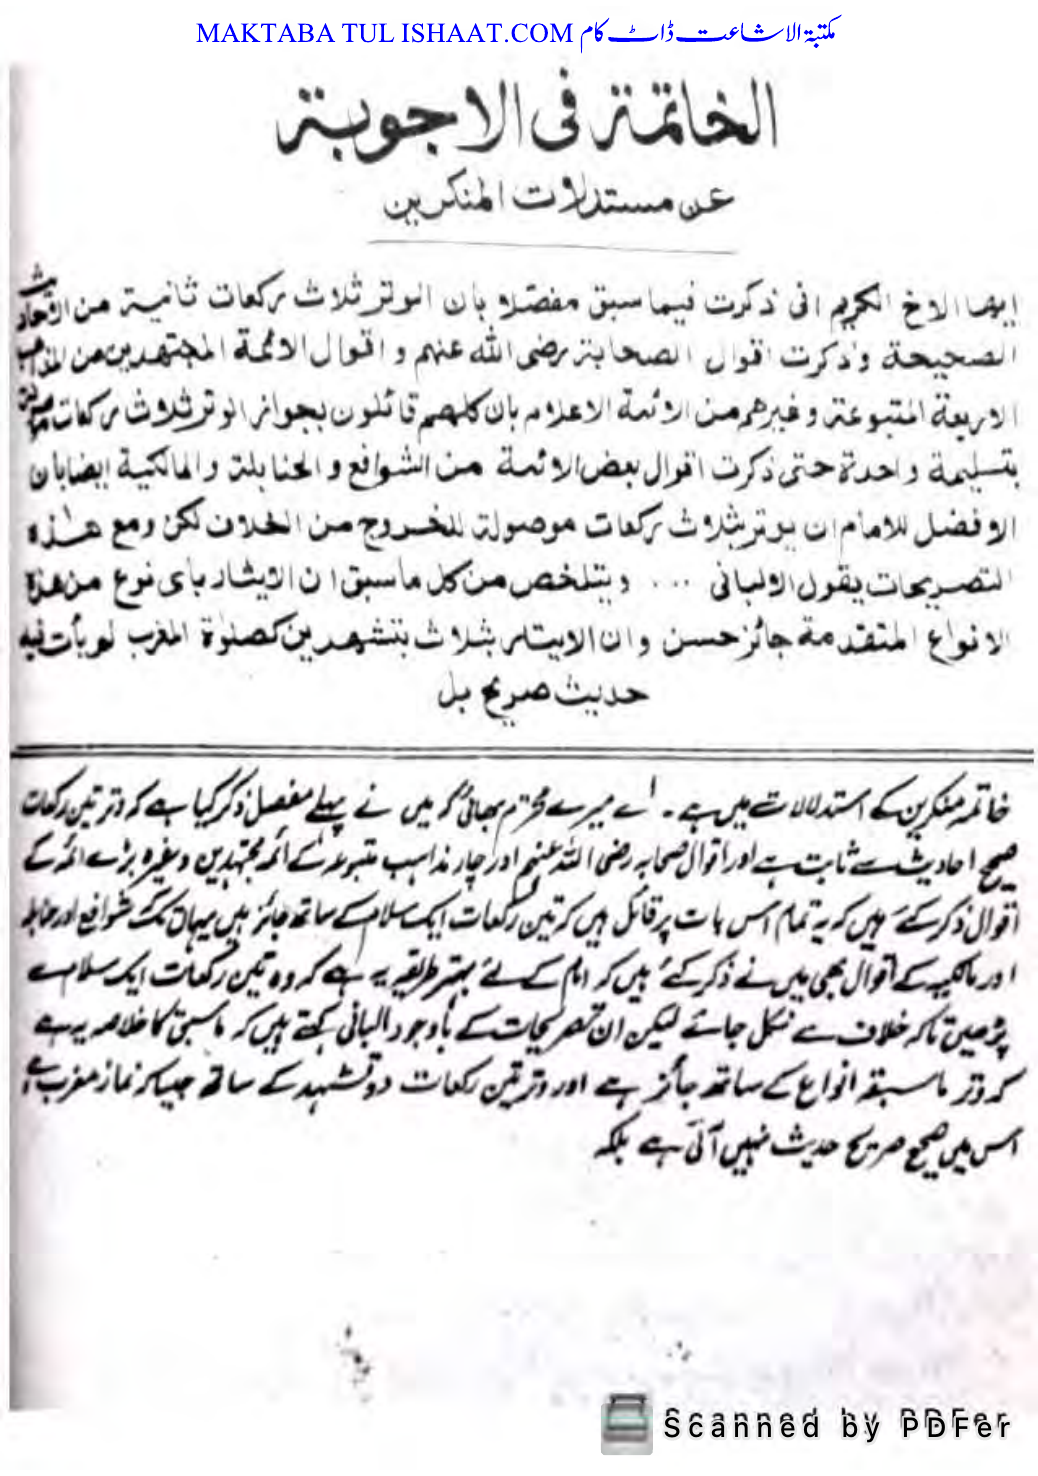 MAKTABA TUL ISHAAT.COM مکتبۃ الاشاعت ڈاٹ کام
الخاتمة فى الاجوبة
عن مستدلات المنكرين
ايها الاخ الكريم انى ذكرت فيما سبق مفصلا بان الوتر ثلاث ركعات ثابتة من الاحاديث
الصحيحة وذكرت اقوال الصحابة رضى الله عنهم و اقوال الائمة المجتهدين من المذاهب
الاربعة المتبوعة وغيرهم من الائمة الاعلام بان كلهم قائلون بجواز الوتر ثلاث ركعات موصولة
بتسليمة واحدة حتى ذكرت اقوال بعض الائمة من الشوافع و الحنابلة والمالكية ايضا بان
الافضل للامام ان يوتر بثلاث ركعات موصولة للخروج من الخلاف لكن ومع هذه
التصريحات يقول الالبانى ... ويتلخص من كل ما سبق ان الايتار باى نوع من هذه
الانواع المتقدمة جائز حسن وان الايتار بثلاث بتشهدين كصلوة المغرب لم يأت فيه
حديث صريح بل
خاتمہ منکرین کے استدلالات میں ہے۔ اے میرے محترم بھائی گرمیں نے پہلے مفصل ذکر کیا ہے کہ وتر تین رکعات
صحیح احادیث سے ثابت ہے اور اقوال صحابہ رضی اللہ عنہم اور چار مذاہب متبوعہ کے ائمہ مجتہدین وغیرہ بڑے ائمہ کے
اقوال ذکر کئے ہیں کہ یہ تمام اس بات پر قائل ہیں کہ تین رکعات ایک سلام کے ساتھ جائز ہیں یہاں تک شوافع اور حنابلہ
اور مالکیہ کے اقوال بھی میں نے ذکر کئے ہیں کہ امام کے لئے بہتر طریقہ یہ ہے کہ وہ تین رکعات ایک سلام سے
پڑھیں تاکہ خلاف سے نکل جائے لیکن ان تصریحات کے باوجود البانی کہتے ہیں کہ ماسبق کا خلاصہ یہ ہے
کہ وتر ماسبقہ انواع کے ساتھ جائز ہے اور وتر تین رکعات دو تشہد کے ساتھ جیسا کہ نماز مغرب ہے
اس میں صحیح صریح حدیث نہیں آئی ہے بلکہ
Scanned by PDFer